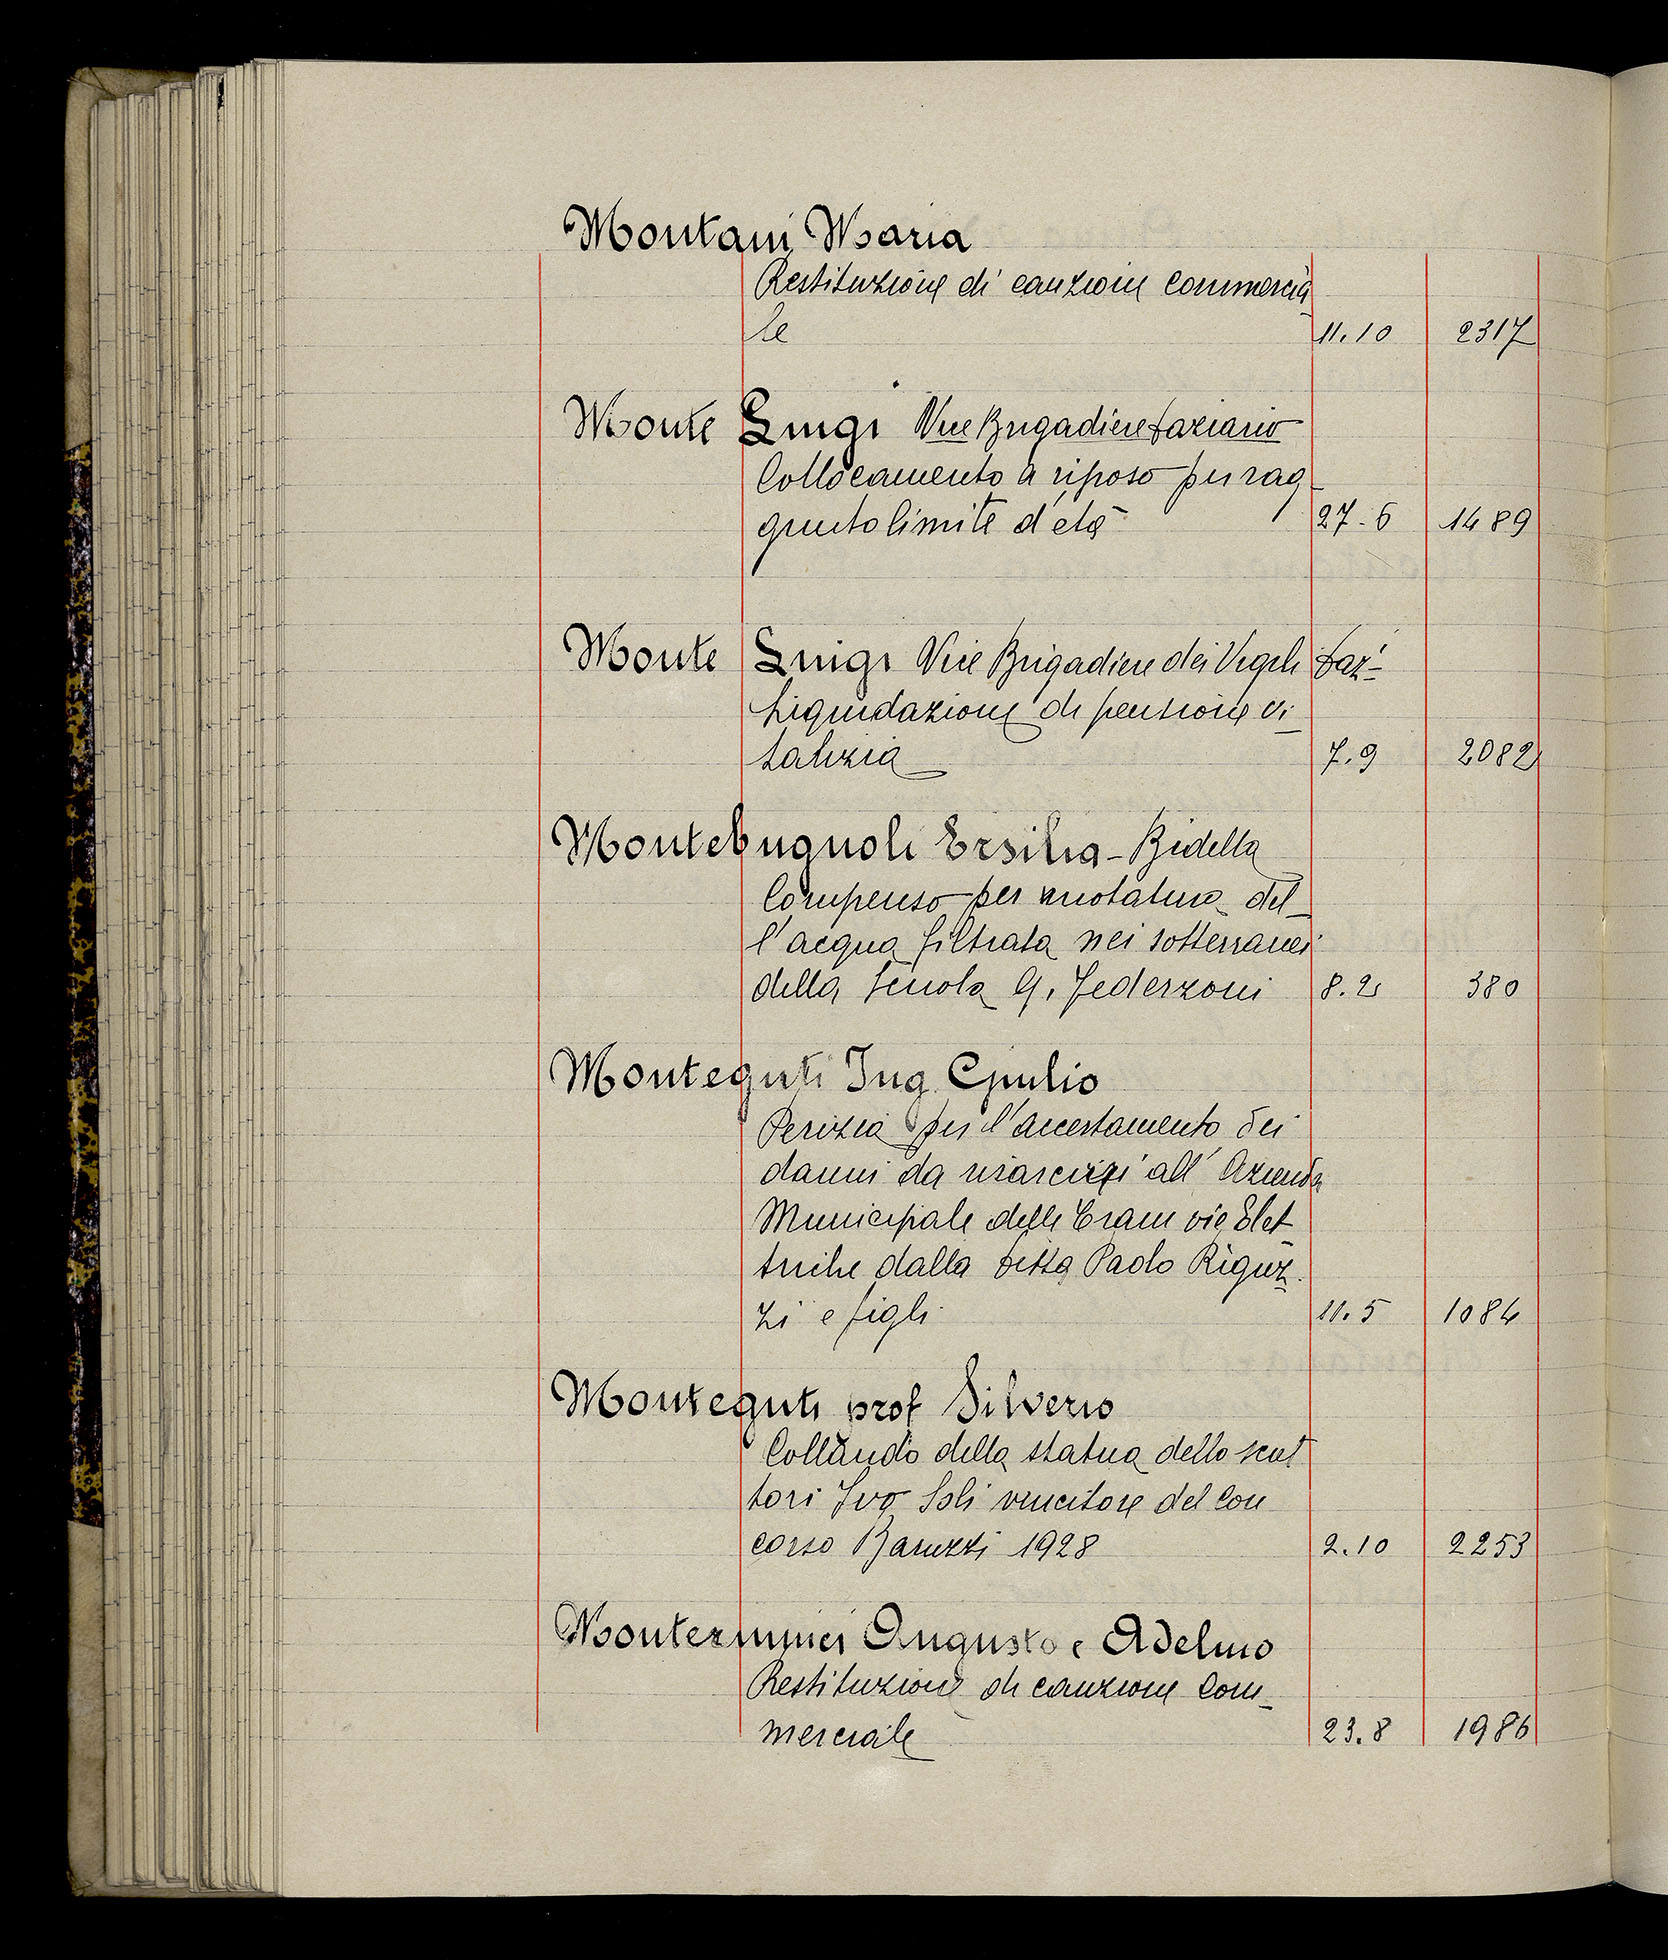 Montani Maria
Restituzione di cauzione commercia
le 11.10 2317
Monte Luigi Vice Brigadiere Daziario
Collocamento a riposo per rag
giunto limite d'età 27-6 1489
Monte Luigi Vice Brigadiere dei Vigili Daz¹
Liquidazione di pensione vi
talizia 7.9 2082
Montebugnoli Ersilia - Bidella
Compenso per vuotatura del-
l'acqua filtrata nei sotterranei
della Scuola G. Federzoni 8.2 380
Monteguti Ing Giulio
Perizia per l'accertamento dei
danni da risarcirsi all' Azienda
Municipale delle Tram vie Elet-
triche dalla Ditta Paolo Riguz-
zi e figli 11.5 1084
Monteguti prof Silverio
Collaudo della statua dello scul
tori Ivo Soli vincitore del Con
corso Baruzzi 1928 2.10 2253
Montezumici Augusto e Adelmo
Restituzione di cauzione Com-
merciale 23.8 1986